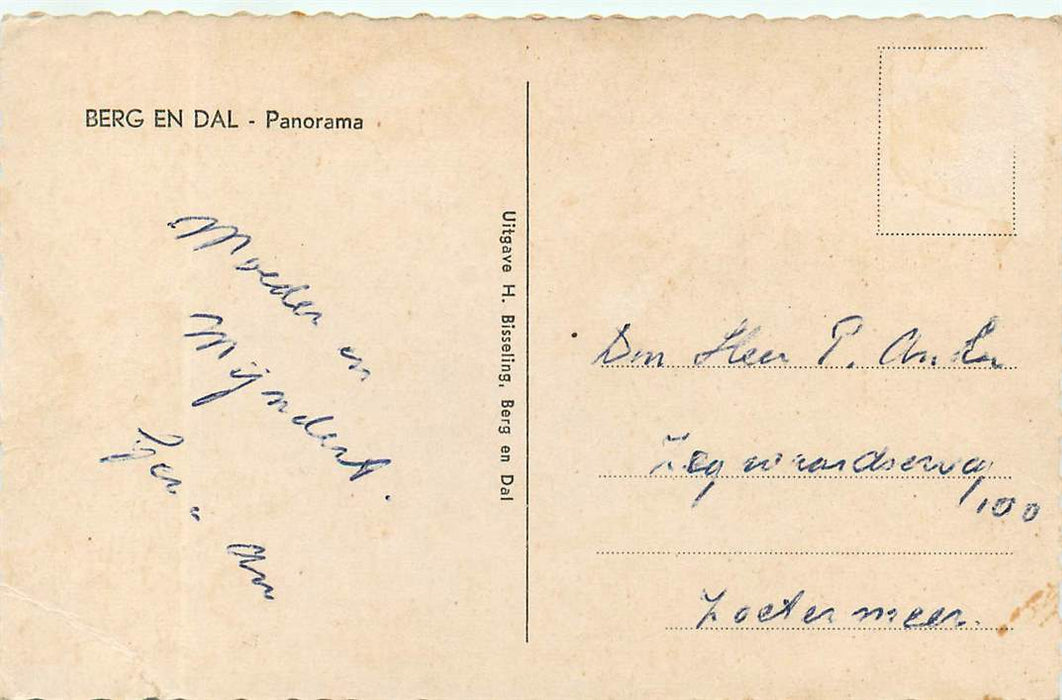 BERG EN DAL - Panorama
Moeder en
Mijndert.
en
Uitgave H. Bisseling, Berg en Dal
Den Heer P.
Zegwaardseweg
100
Zoetermeer.